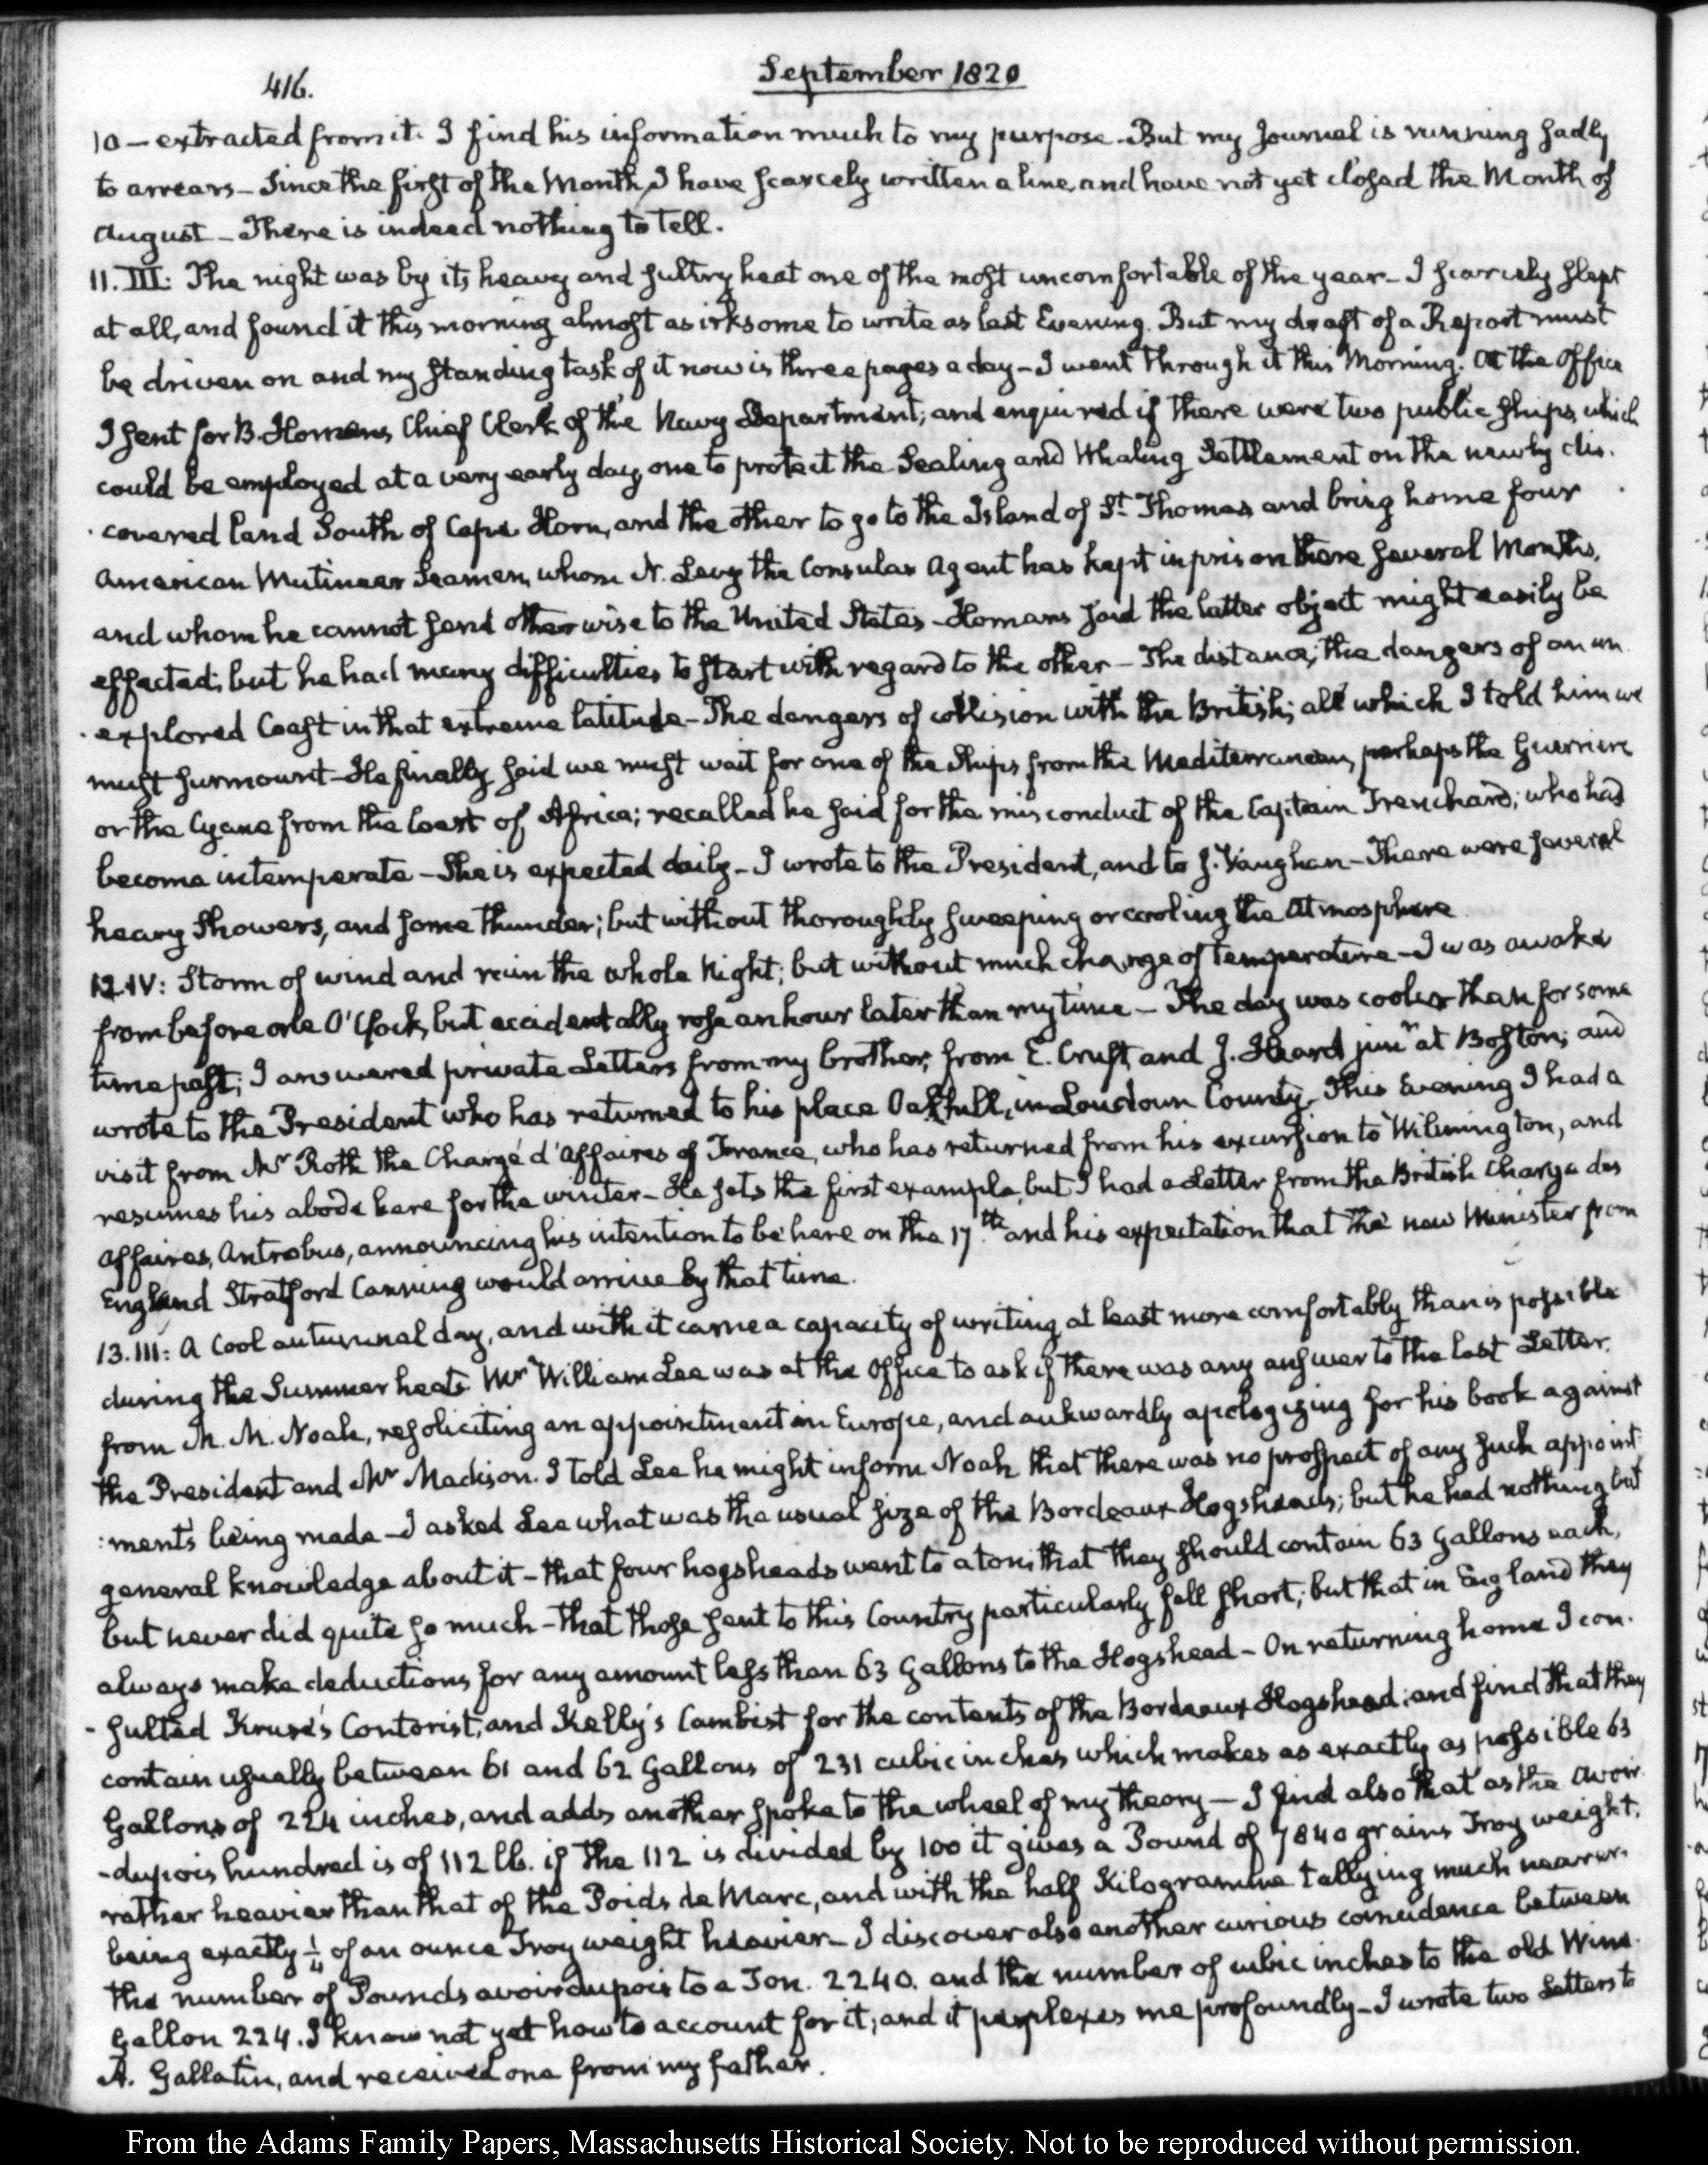 416.
September 1820
10 — extracted from it. I find his information much to my purpose. But my Journal is running sadly
to arrears — Since the first of the Month, I have scarcely written a line, and have not yet closed the Month of
August — There is indeed nothing to tell.
11. III: The night was by its heavy and sultry heat one of the most uncomfortable of the year — I scarcely slept
at all, and found it this morning almost as irksome to write as last Evening. But my draft of a Report must
be driven on and my standing task of it now is three pages a day — I went through it this Morning. At the Office
I sent for B. Homans, Chief Clerk of the Navy Department; and enquired if there were two public ships, which
could be employed at a very early day, one to protect the Sealing and Whaling Settlement on the newly dis-
-covered land South of Cape Horn, and the other to go to the Island of St. Thomas and bring home four
American Mutineer Seamen, whom N. Levy the Consular Agent has kept in prison there several Months,
and whom he cannot send otherwise to the United States — Homans said the latter object might easily be
effected; but he had many difficulties to start with regard to the other — The distance; the dangers of an un-
-explored Coast in that extreme latitude — The dangers of collision with the British; all which I told him we
must surmount — He finally said we must wait for one of the Ships from the Mediterranean, perhaps the Guerriere
or the Cyane from the Coast of Africa; recalled he said for the misconduct of the Captain Trenchard; who had
become intemperate — She is expected daily — I wrote to the President, and to J. Vaughan — There were several
heavy Showers, and some thunder; but without thoroughly sweeping or cooling the Atmosphere
12. IV: Storm of wind and rain the whole Night; but without much change of temperature — I was awake
from before one O'Clock, but accidentally rose an hour later than my time — The day was cooler than for some
time past; I answered private Letters from my brother, from E. Cruft, and J. Heard junr. at Boston; and
wrote to the President who has returned to his place Oakhill, in Loudoun County. This Evening I had a
visit from Mr Roth the Chargé d'Affaires of France, who has returned from his excursion to Wilmington, and
resumes his abode here for the winter — He sets the first example, but I had a Letter from the British Charge des
Affaires, Antrobus, announcing his intention to be here on the 17.th and his expectation that the new Minister from
England Stratford Canning would arrive by that time.
13. III: A Cool autumnal day, and with it came a capacity of writing at least more comfortably than is possible
during the Summer heats. Mr William Lee was at the Office to ask if there was any answer to the last Letter
from M. M. Noah, resoliciting an appointment in Europe, and aukwardly apologizing for his book against
the President and Mr Madison. I told Lee he might inform Noah that there was no prospect of any such appoint-
:ments being made — I asked Lee what was the usual size of the Bordeaux Hogsheads; but he had nothing but
general knowledge about it — that four hogsheads went to a ton; that they should contain 63 Gallons each,
but never did quite so much — that those sent to this Country particularly fell short; but that in England they
always make deductions for any amount less than 63 Gallons to the Hogshead — On returning home I con-
-sulted Kruse's Contorist, and Kelly's Cambist for the contents of the Bordeaux Hogshead; and find that they
contain usually between 61 and 62 Gallons of 231 cubic inches which makes as exactly as possible 63
Gallons of 224 inches, and adds another spoke to the wheel of my theory — I find also that as the avoir-
-dupois hundred is of 112 lb. if the 112 is divided by 100 it gives a Pound of 7840 grains Troy weight,
rather heavier than that of the Poids de Marc, and with the half Kilogramme tallying much nearer
being exactly 1/4 of an ounce Troy weight heavier — I discover also another curious coincidence between
the number of Pounds avoirdupois to a Ton. 2240. and the number of cubic inches to the old Wine
Gallon 224. I know not yet how to account for it; and it perplexes me profoundly — I wrote two Letters to
A. Gallatin, and received one from my father.
From the Adams Family Papers, Massachusetts Historical Society. Not to be reproduced without permission.